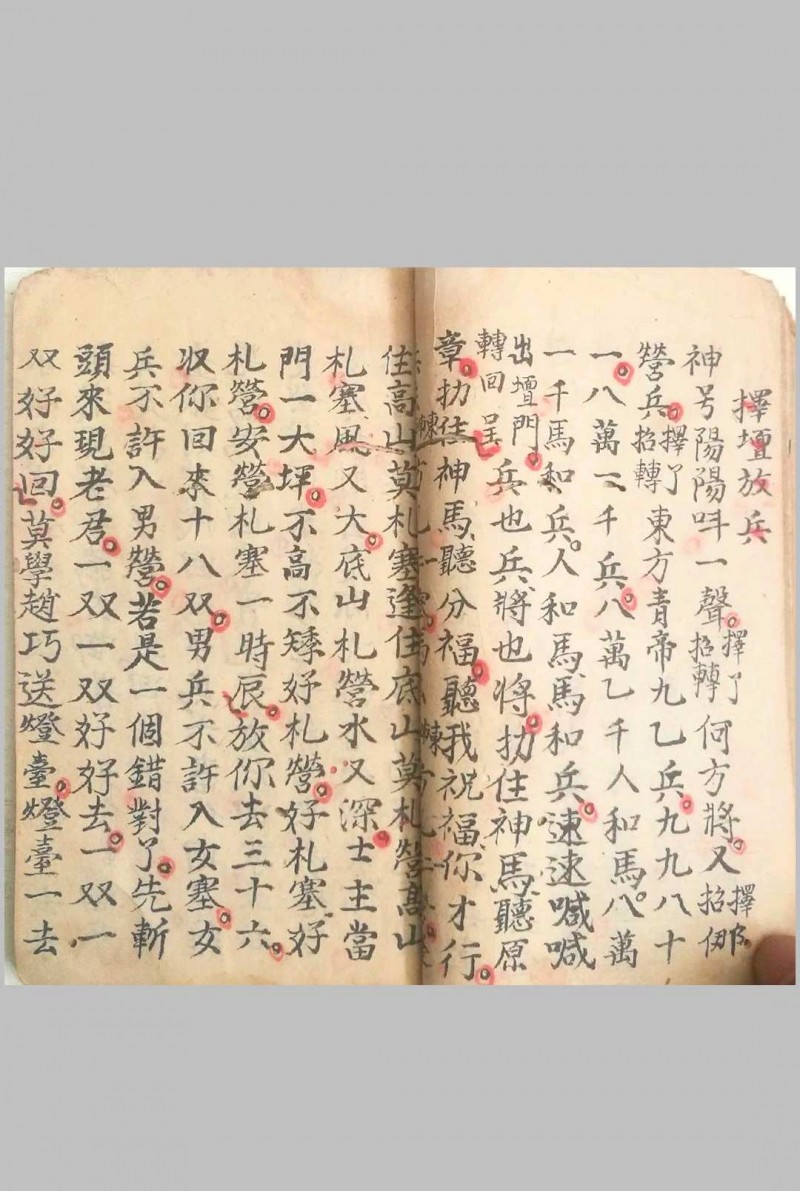 擇壇放兵
神号陽陽叫一聲擇了招轉何方將又擇招那
營兵擇了招轉東方青帝九乙兵九九八十
一八萬一千兵八萬乙千人和馬八萬
一千馬和兵人和馬馬和兵速速喊喊
出壇門轉回呈兵也兵將也將扐住神馬聽原
章扐住神馬聽分福聽我祝福你才行
住高山莫札塞逢住底山莫札營高山
札塞風又大底山札營水又深士主當
門一大坪不高不矮好札營好札塞好
札營安營札塞一時辰放你去三十六
収你回來十八双男兵不許入女塞女
兵不許入男營若是一個錯對了先斬
頭來現老君一双一双好好去一双一
双好好回莫學趙巧送燈臺燈臺一去